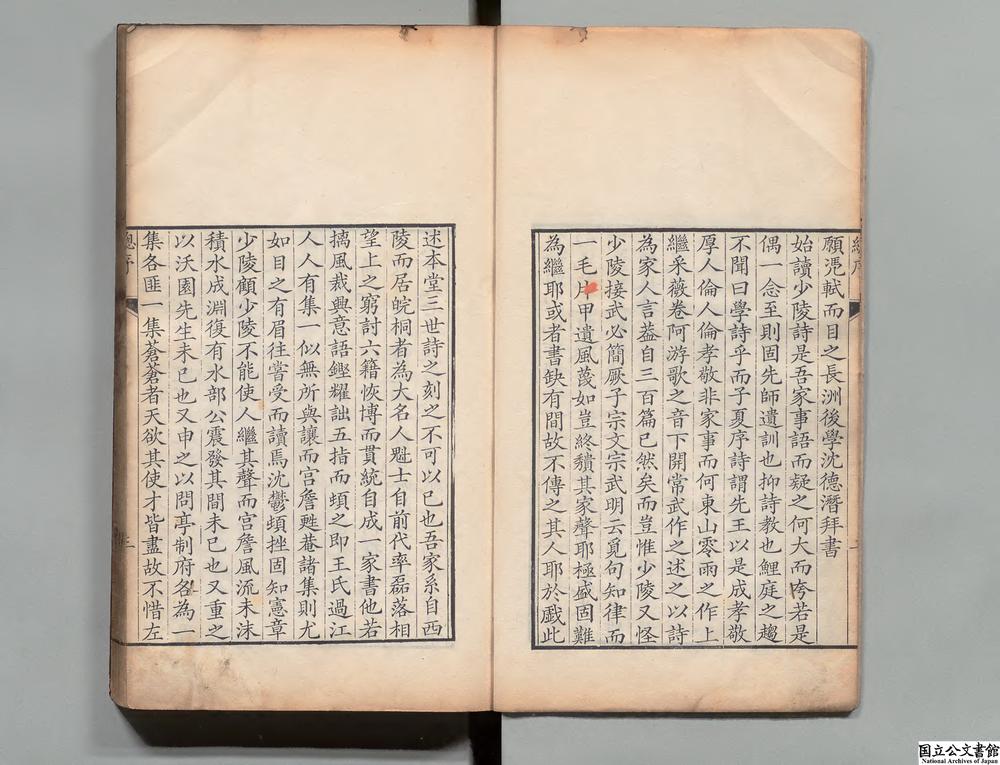 願憑軾而目之長洲後學沈德潛拜書
始讀少陵詩是吾家事語而疑之何大而夸若是
偶一念至則固先師遺訓也抑詩教也鯉庭之趨
不聞曰學詩乎而子夏序詩謂先王以是成孝敬
厚人倫人倫孝敬非家事而何東山零雨之作上
繼采薇卷阿游歌之音下開常武作之述之以詩
為家人言葢自三百篇已然矣而豈惟少陵又怪
少陵接武必簡厥子宗文宗武明云覓句知律而
一毛片甲遺風蔑如豈終穨其家聲耶極盛固難
為繼耶或者書缺有間故不傳之其人耶於戲此
述本堂三世詩之刻之不可以已也吾家系自西
陵而居皖桐者為大名人魁士自前代率磊落相
望上之窮討六籍恢博而貫統自成一家書他若
摛風裁興意語鏗耀詘五指而頓之即王氏過江
人人有集一似無所與讓而宮詹甦菴諸集則尤
如目之有眉往嘗受而讀焉沈鬱頓挫固知憲章
少陵顧少陵不能使人繼其聲而宮詹風流未沫
積水成淵復有水部公震發其間未已也又重之
以沃園先生未已也又申之以問亭制府各為一
集各匪一集蒼蒼者天欲其使才皆盡故不惜左
總序
三
国立公文書館
National Archives of Japan